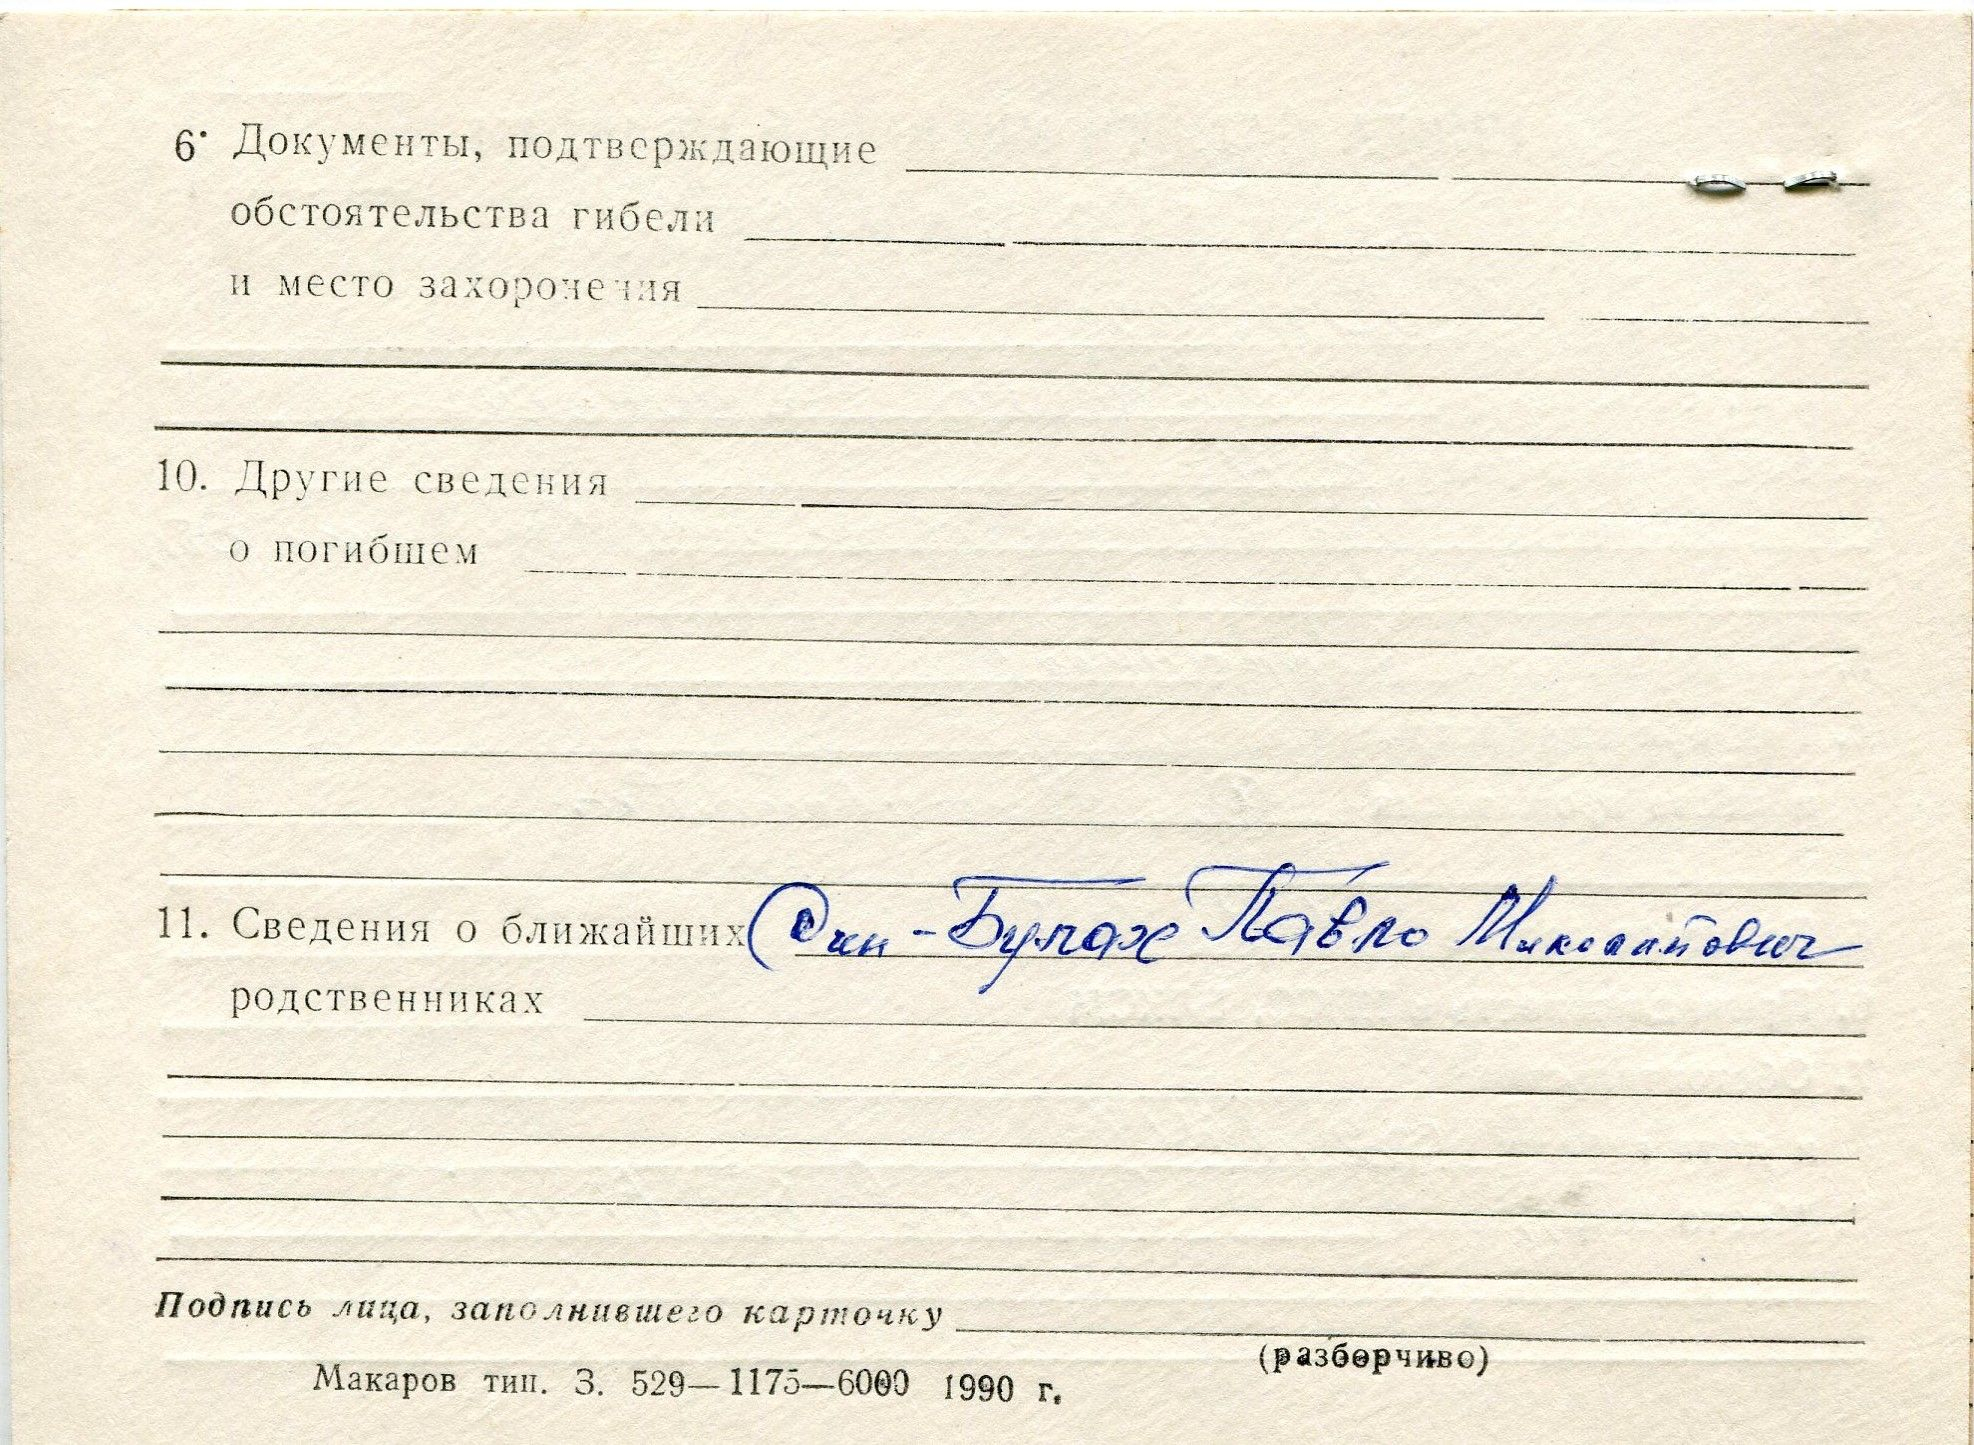 6. Документы, подтверждающие
обстоятельства гибели
и место захоронения
10. Другие сведения
о погибшем
11. Сведения о ближайших Син - Булах Павло Миколайович
родственниках
Подпись лица, заполнившего карточку
(разборчиво)
Макаров тип. З. 529—1175—6000 1990 г.